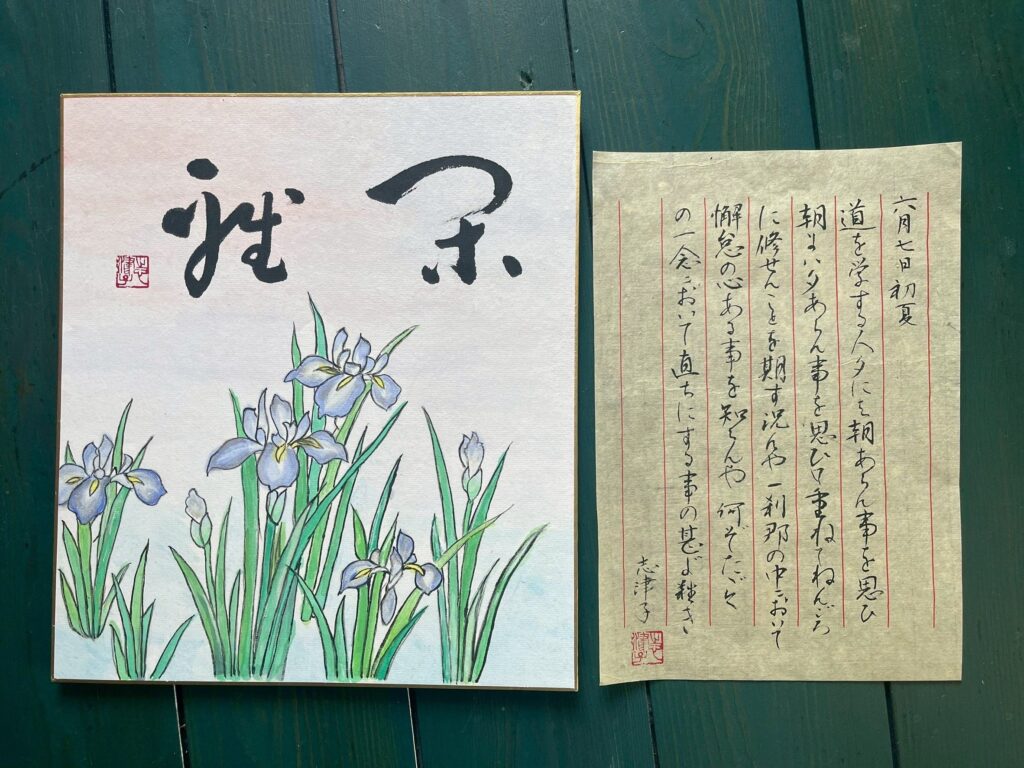 閑雅
志津子
六月七日 初夏
道を学する人夕には朝あらん事を思ひ
朝には夕あらん事を思ひて重ねてねんごろ
に修せんことを期す況んや一刹那の中において
懈怠の心ある事を知らんや 何ぞただ今
の一念において直ちにする事の甚だ難き
志津子
志津子